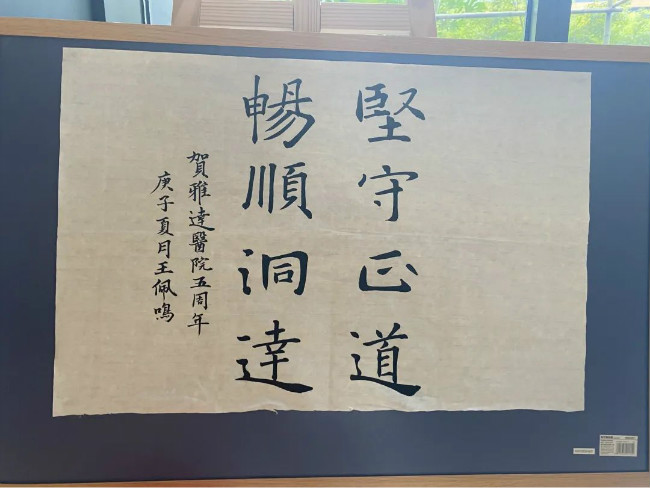 堅守正道
暢順洞達
賀雅達醫院五周年
庚子夏月王佩鳴